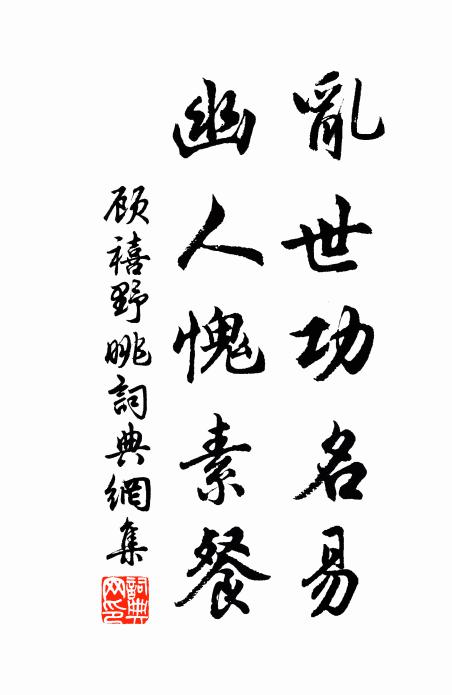 亂世功名易
幽人愧素餐
顾禧野眺詞典網集
詞典网印